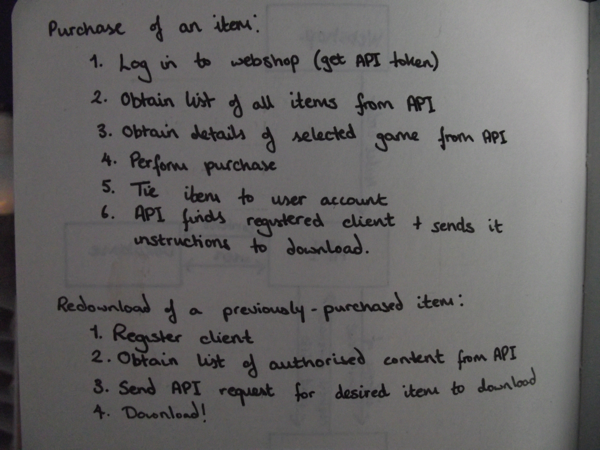 Purchase of an item:
1. Log in to webshop (get API token)
2. Obtain list of all items from API
3. Obtain details of selected game from API
4. Perform purchase
5. Tie item to user account
6. API finds registered client + sends it
instructions to download.
Redownload of a previously-purchased item:
1. Register client
2. Obtain list of authorised content from API
3. Send API request for desired item to download
4. Download!